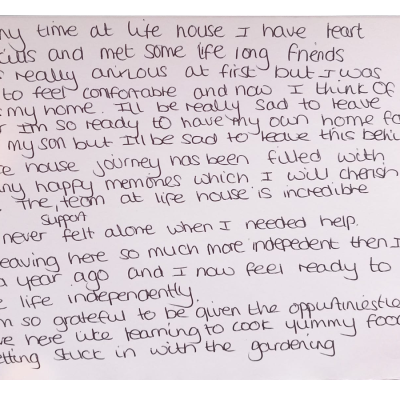 ny time at life house I have leart
and met some life long friends
really anxious at first but I was
to feel comfortable and now I think of
my home. I'll be really sad to leave
I'm so ready to have my own home fo
my son but I'll be sad to leave this behi
e house journey has been filled with
ny happy memories which I will cherish
. The team at life house is incredible
support
never felt alone when I needed help.
eaving here so much more indepedent then I
a year ago and I now feel ready to
e life independently.
m so grateful to be given the oppurtiniestie
ve here like learning to cook yummy food
etting stuck in with the gardening